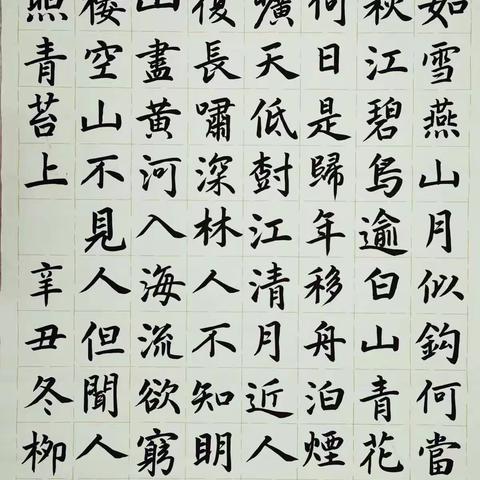 如雪燕山月似鈎何當
秋江碧鳥逾白山青花
何日是歸年移舟泊煙
曠天低樹江清月近人
復長嘯深林人不知明
山盡黃河入海流欲窮
樓空山不見人但聞人
照青苔上 辛丑冬柳